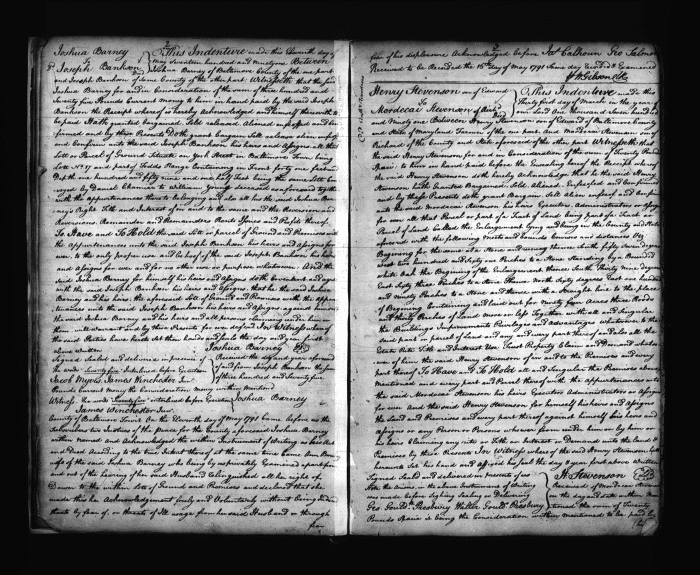 Joshua Barney
To
Joseph Bankson
This Indenture made this Eleventh day of
May Seventeen hundred and Ninety one Between
Joshua Barney of Baltimore County of the one part
and Joseph Bankson of same County of the other part. Witnesseth that the said
Joshua Barney for and in Consideration of the sum of three hundred and
Seventy five Pounds Current money to him in hand paid by the said Joseph
Bankson the Receipt whereof is hereby Acknowledged
hath granted bargained Sold
and by these Presents Doth grant bargain Sell
and Confirm unto the said Joseph Bankson his heirs and Assigns all that
Lott or Parcel of Ground Situate on York Street in Baltimore Town being
Lott No. 17 and fronting
one hundred and fifty nine
by Daniel Chamier to William Young deceased as aforesaid together
with the appurtenances thereto belonging and also all the said Joshua Bar-
ney's Right Title and Interest of in and to the same and the Reversion and
Reversions Remainder and Remainders Rents Issues and Profits thereof
To Have and To Hold the said Lott or parcel of Ground and Premises and
the appurtenances unto the said Joseph Bankson his heirs and Assigns for
ever to the only proper use and behoof of the said Joseph Bankson his heirs
and Assigns for ever and for no other use or purpose whatsoever. And the
said Joshua Barney for himself his heirs and Assigns do th Covenant and agree
with the said Joseph Bankson his heirs and Assigns, that he the said Joshua
Barney and his heirs, the aforesaid Lott of Ground and Premises with the appur
tenances unto the said Joseph Bankson his heirs and Assigns against him the
said Joshua Barney and his heirs and all persons claiming under him or
them will warrant and by these Presents for ever defend In Witness whereof
the said Parties have hereto Set their hands and Seals the day and year first
above written
Joshua Barney
Signed Sealed and delivered in presence of
the words "Seventy five" interlined before
Jacob Myers James Winchester Junr.
Received the day and year aforesaid
of and from Joseph Bankson the sum
of three hundred and Seventy five
Pounds Current money the Consideration money within mentioned
Witness the words "Seventy five" interlined before Joshua Barney
James Winchester Junr.
County of Baltimore Towit On the Eleventh day of May 1791 Came before us the
Subscribers two Justices of the Peace for the County aforesaid Joshua Barney
within named and Acknowledged the within Instrument of Writing as his Act
and Deed According to the true Intent thereof at the same time Came Ann Barney
wife of the said Joshua Barney who being by us privately Examined apart from
and out of the hearing of her said Husband relinquished all her right of
Dower to the within Lott of Ground and Premises and declared that she
made this her Acknowledgement freely and Voluntarily without being
thereto by fear of, or threats of Ill usage from her said Husband or through
fear
fear of his displeasure Acknowledged before Jas. Calhoun Geo Salmon
Received to be Recorded the 16th day of May 1791 same day Recorded & Examined
Henry Stevenson of Edward
To
Mordecai Stevenson of Richd.
This Indenture made this
Twenty first day of March in the year of
our Lord One thousand Seven hundred
and Ninety one Between Henry Stevenson son of Edward of Baltimore County
and State of Maryland Farmer of the one part, and Mordecai Stevenson son of
Richard of the County and State aforesaid of the other part Witnesseth that
the said Henry Stevenson for and in Consideration of the sum of Twenty Pounds
Specie to him in hand paid before the Ensealing hereof the Receipt whereof
he the said Henry Stevenson doth hereby acknowledge that he the said Henry
Stevenson hath Granted Bargained Sold Aliened Enfeoffed and Confirmed
and by these Presents doth grant Bargain Sell Alien enfeoff and Confirm
unto the said Mordecai Stevenson his heirs Executors Administrators or Assigns
for ever all that Parcel or part of a Tract of Land being part of a Tract or
Parcel of Land Called the Enlargement lying and being in the County and State
aforesaid with the following metes and bounds Courses and distances Viz.
Beginning for the same at a Stone and running thence South fifty Seven degrees
East two hundred and Sixty six Perches to a Stone Standing by a Bounded
white Oak the Beginning of the Enlargement thence South thirty Nine degrees
East Sixty three Perches to a Stone thence North Sixty degrees West two hundred
and Ninety Perches to a Stone and thence with a straight line to the place
of Beginning Containing and laid out for Ninety four Acres three Roods
and thirty Perches of Land more or less Together with all and Singular
the Buildings Improvements Priviledges and Advantages whatsoever to the
said part or parcel of Land and of and every part thereof and also all the
Estate Right Title and Interest Use Trust Property Claim and Demand whatso-
ever of him the said Henry Stevenson of in and to the Premises and every
part thereof To Have and To Hold all and Singular the Premises above
Mentioned and every part and Parcel thereof with the appurtenances unto
the said Mordecai Stevenson his heirs Executors Administrators or Assigns
for ever And the said Henry Stevenson for himself his heirs and Assigns
the Land and Premises and every part thereof against himself his heirs and
assigns or any Person or Persons whosoever from under him or by him or
his heirs Claiming any into or Title or Interest or Demand unto the Land &
Premises by these Presents In Witness whereof the said Henry Stevenson hath
hereunto Set his hand and affixed his Seal the day & year first above written
Signed Sealed and delivered in presents of us
H. Stevenson
for the same in the above Instrument of Writing
was made before signing Sealing or Delivering
Geo. Gouldn. Presbury Walter Gouldn. Presbury
Received of Mordecai Stevenson
on the day and date within Men
tioned the sum of Twenty
Pounds Specie it being the Consideration within mentioned to be paid